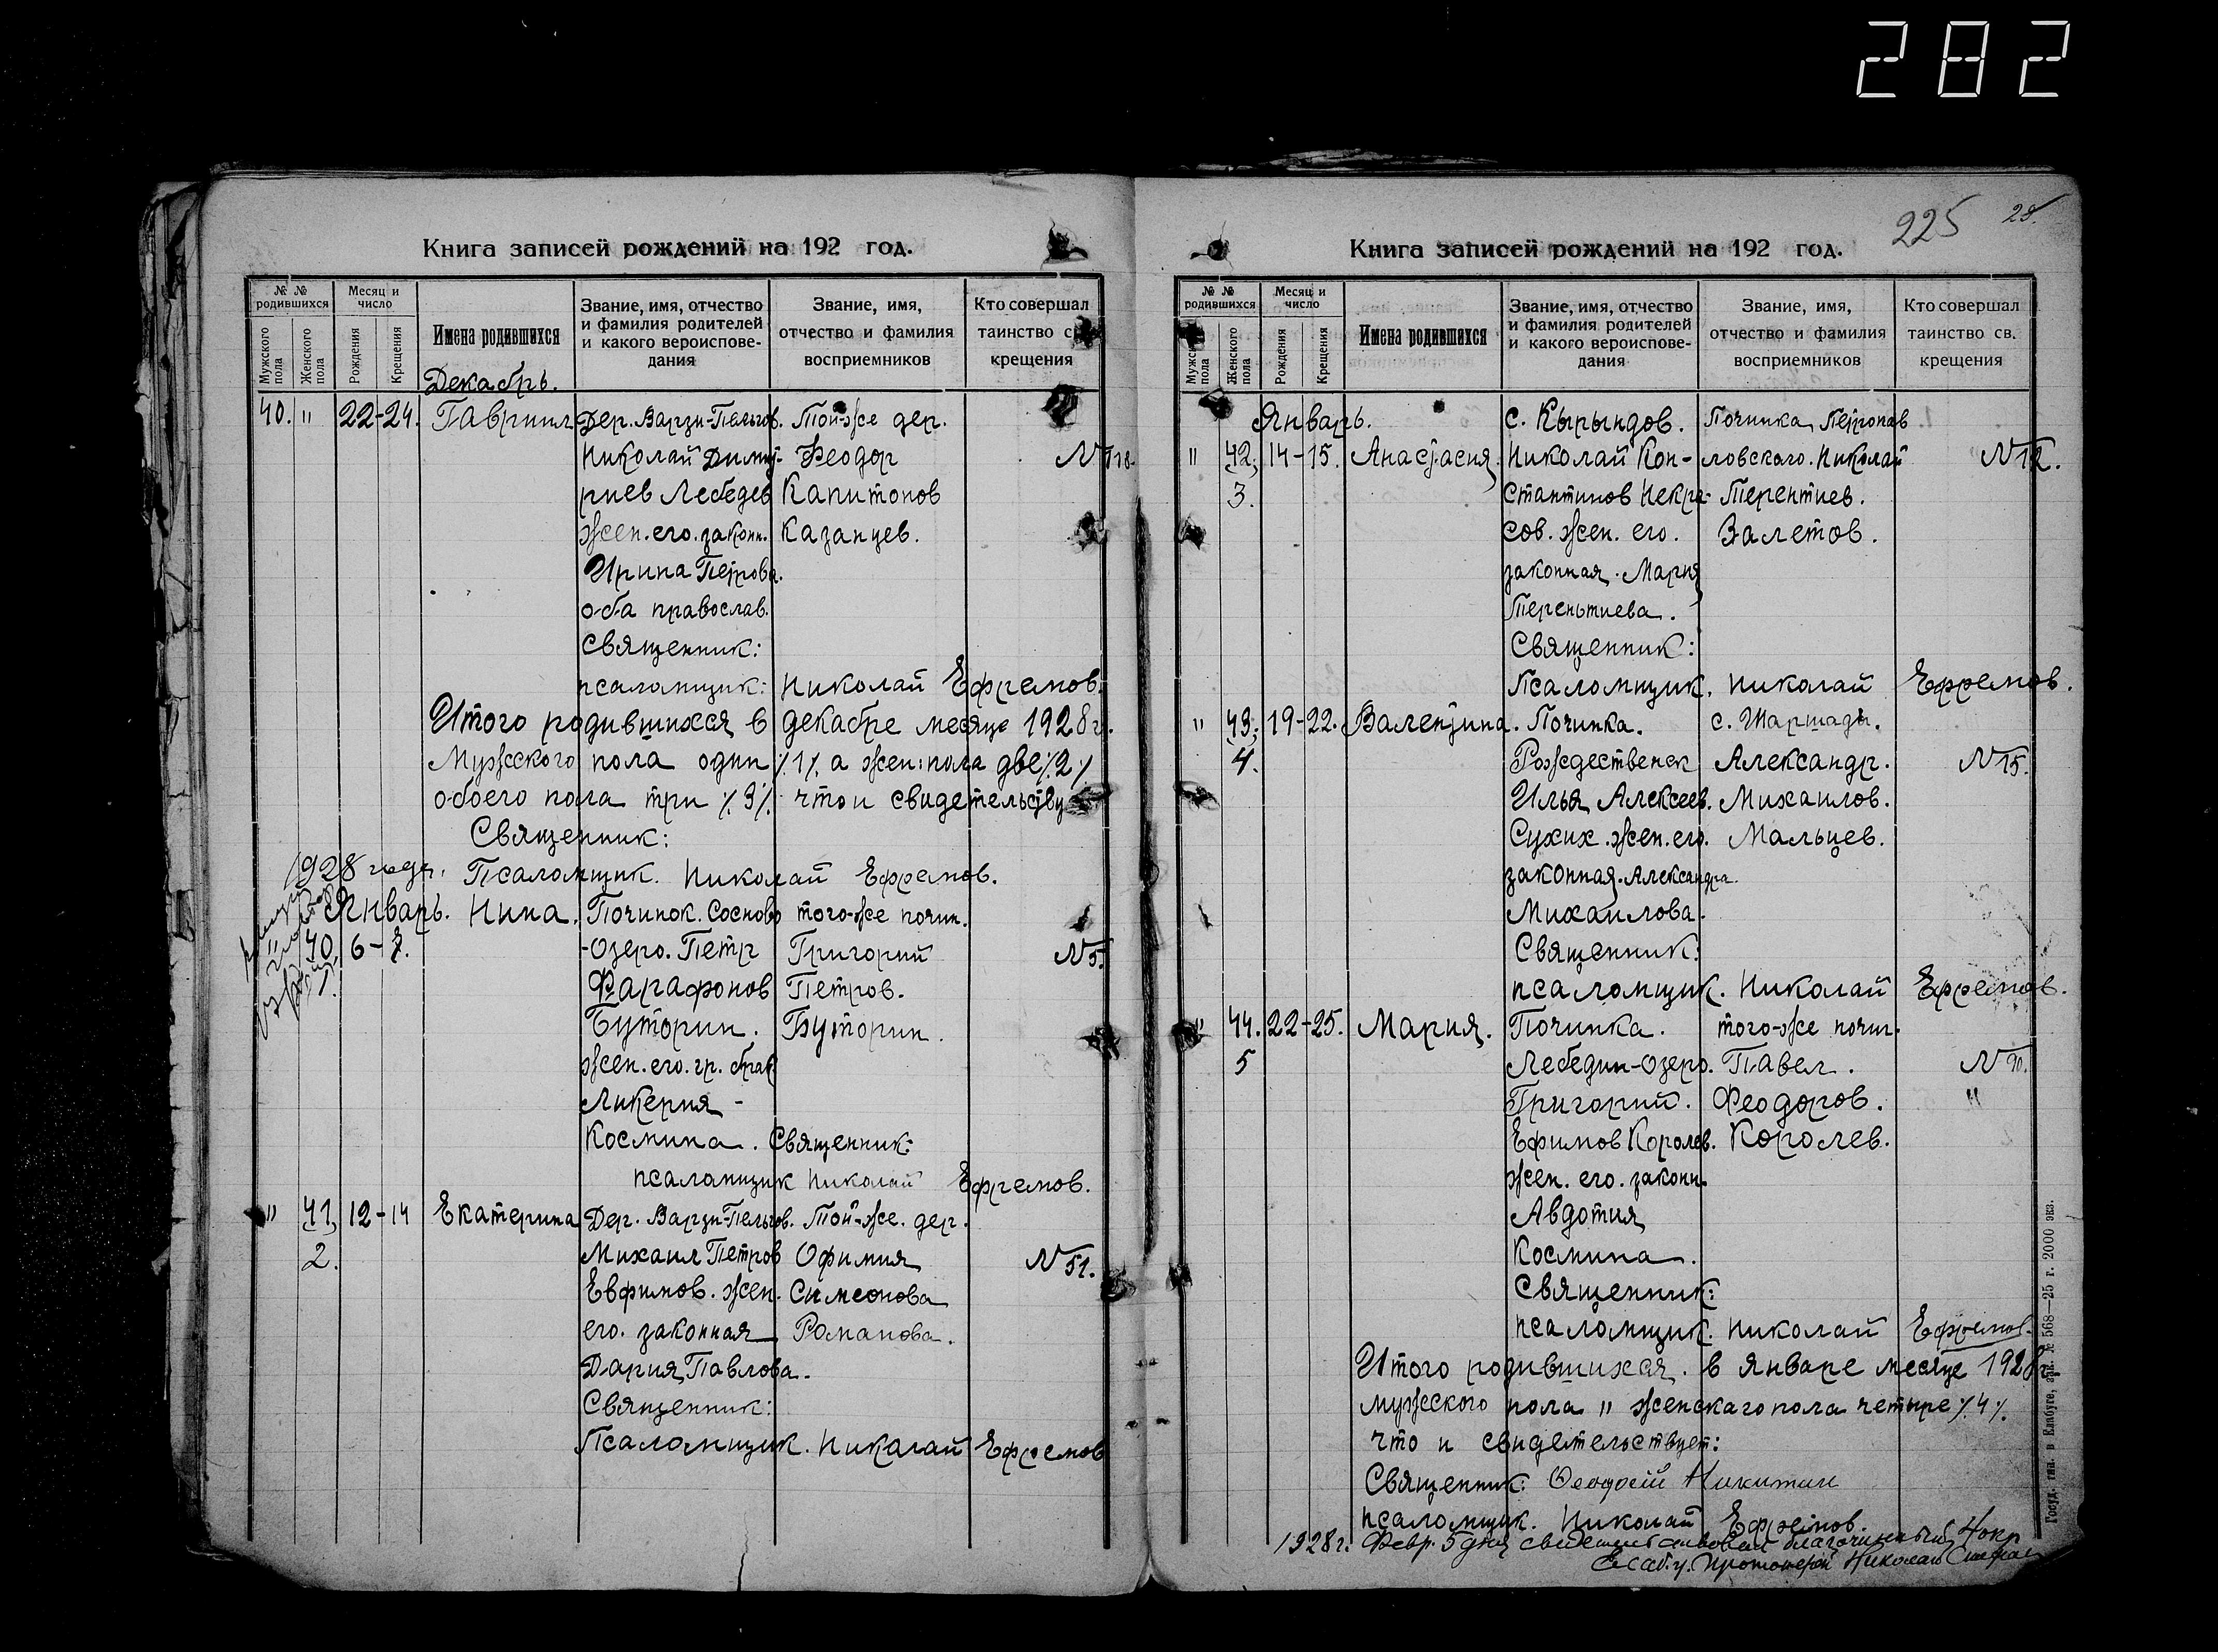 282
Книга записей рождений на 192 год.
№ № родившихся
Мужского пола
Женского пола
Месяц и число
Рождения
Крещения
Имена родившихся
Звание, имя, отчество и фамилия родителей и какого вероисповедания
Звание, имя, отчество и фамилия восприемников
Кто совершал таинство св. крещения
Декабрь.
40. " 22-24. Гавриил Дер. Варзи-Пельгов. Той-же дер.
Николай Димит- Феодор
риев Лебедев Капитонов
жен. его. законн. Казанцев.
Ирина Петрова.
оба православ.
Священник:
псаломщик: Николай Ефремов.
Итого родившихся в декабре месяце 1928 г.
Мужского пола один %1% а жен: пола две %2%
обоего пола три %3% что и свидетельству
Священник:
1928 года. Псаломщик. Николай Ефремов.
Январь. Нина. Починок. Сосново того-же почин.
" 40, 6- -Озеро. Петр Григорий N 5.
1. Фарафонов Петров.
Буторин. Буторин.
жен. его. гр. брак
Ликерия -
Космина. Священник:
псаломщик Николай Ефремов.
" 41, 12-14 Екатерина Дер. Варзи-Пельгов. Той-же. дер.
2. Михаил Петров Офимия N 51.
Евфимов. жен. Симеонова
его. законная Романова.
Дария Павлова.
Священник:
Псаломщик. Николай Ефремов
225 28.
Книга записей рождений на 192 год.
№ № родившихся
Мужск пола
Женского пола
Месяц и число
Рождения
Крещения
Имена родившихся
Звание, имя, отчество и фамилия родителей и какого вероисповедания
Звание, имя, отчество и фамилия восприемников
Кто совершал таинство св. крещения
Январь. с. Кырындов. Починка Петропав
" 42, 14-15. Анастасия. Николай Кон- ловского. Николай N 12.
3. стантинов Некра- Терентиев.
сов. жен. его. Валетов.
законная. Мария
Терентьиева.
Священник:
Псаломщик. Николай Ефремов.
" 43, 19-22. Валентина. Починка. с. Шаршады.
4. Рождественск Александр. N 15.
Илья Алексеев. Михаилов.
Сухих. жен. его. Мальцев.
законная. Александра
Михаилова.
Священник:
псаломщик. Николай Ефремов.
" 44. 22-25. Мария. Починка. того-же почин.
5 Лебедин-Озеро. Павел. N 90.
Григорий. Феодоров. "
Ефимов Королев. Королев.
жен. его. законн.
Авдотия
Космина.
Священник:
псаломщик. Николай Ефремов.
Итого родившихся. в январе месяце 1928 г
мужского пола " женскаго пола четыре %4%
что и свидетельствует:
Священник: Никитин
псаломщик. Николай Ефремов.
1928 г. Февр. 5 дня свидетельствовал благочинный 4 окр
Елаб. у. Протоиерей Николай
Госуд. тип. в Елабуге, зак. № 568—25 г. 2000 экз.